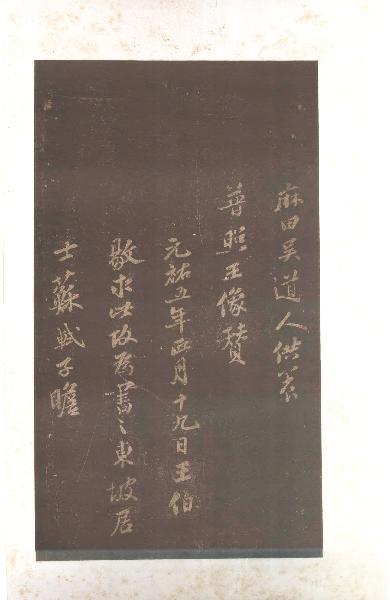 麻田吳道人供養
普照王像贊
元祐五年正月十九日王伯
敭求此故為書之東坡居
士蘇軾子瞻